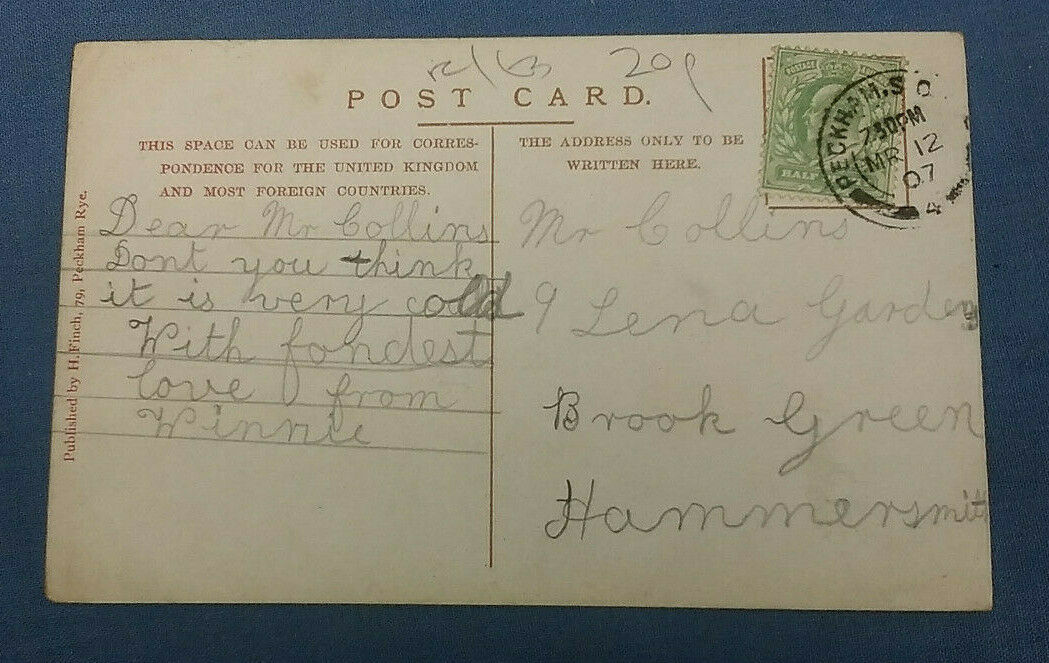 20p
POST CARD.
THIS SPACE CAN BE USED FOR CORRES-
PONDENCE FOR THE UNITED KINGDOM
AND MOST FOREIGN COUNTRIES.
THE ADDRESS ONLY TO BE
WRITTEN HERE.
HALF
PECKHAM.S O
730PM
MR 12
07
4
Published by H. Finch, 79, Peckham Rye.
Dear Mr Collins
Dont you think
it is very cold
With fondest
love from
Winnie
Mr Collins
9 Lena Gardens
Brook Green
Hammersmith